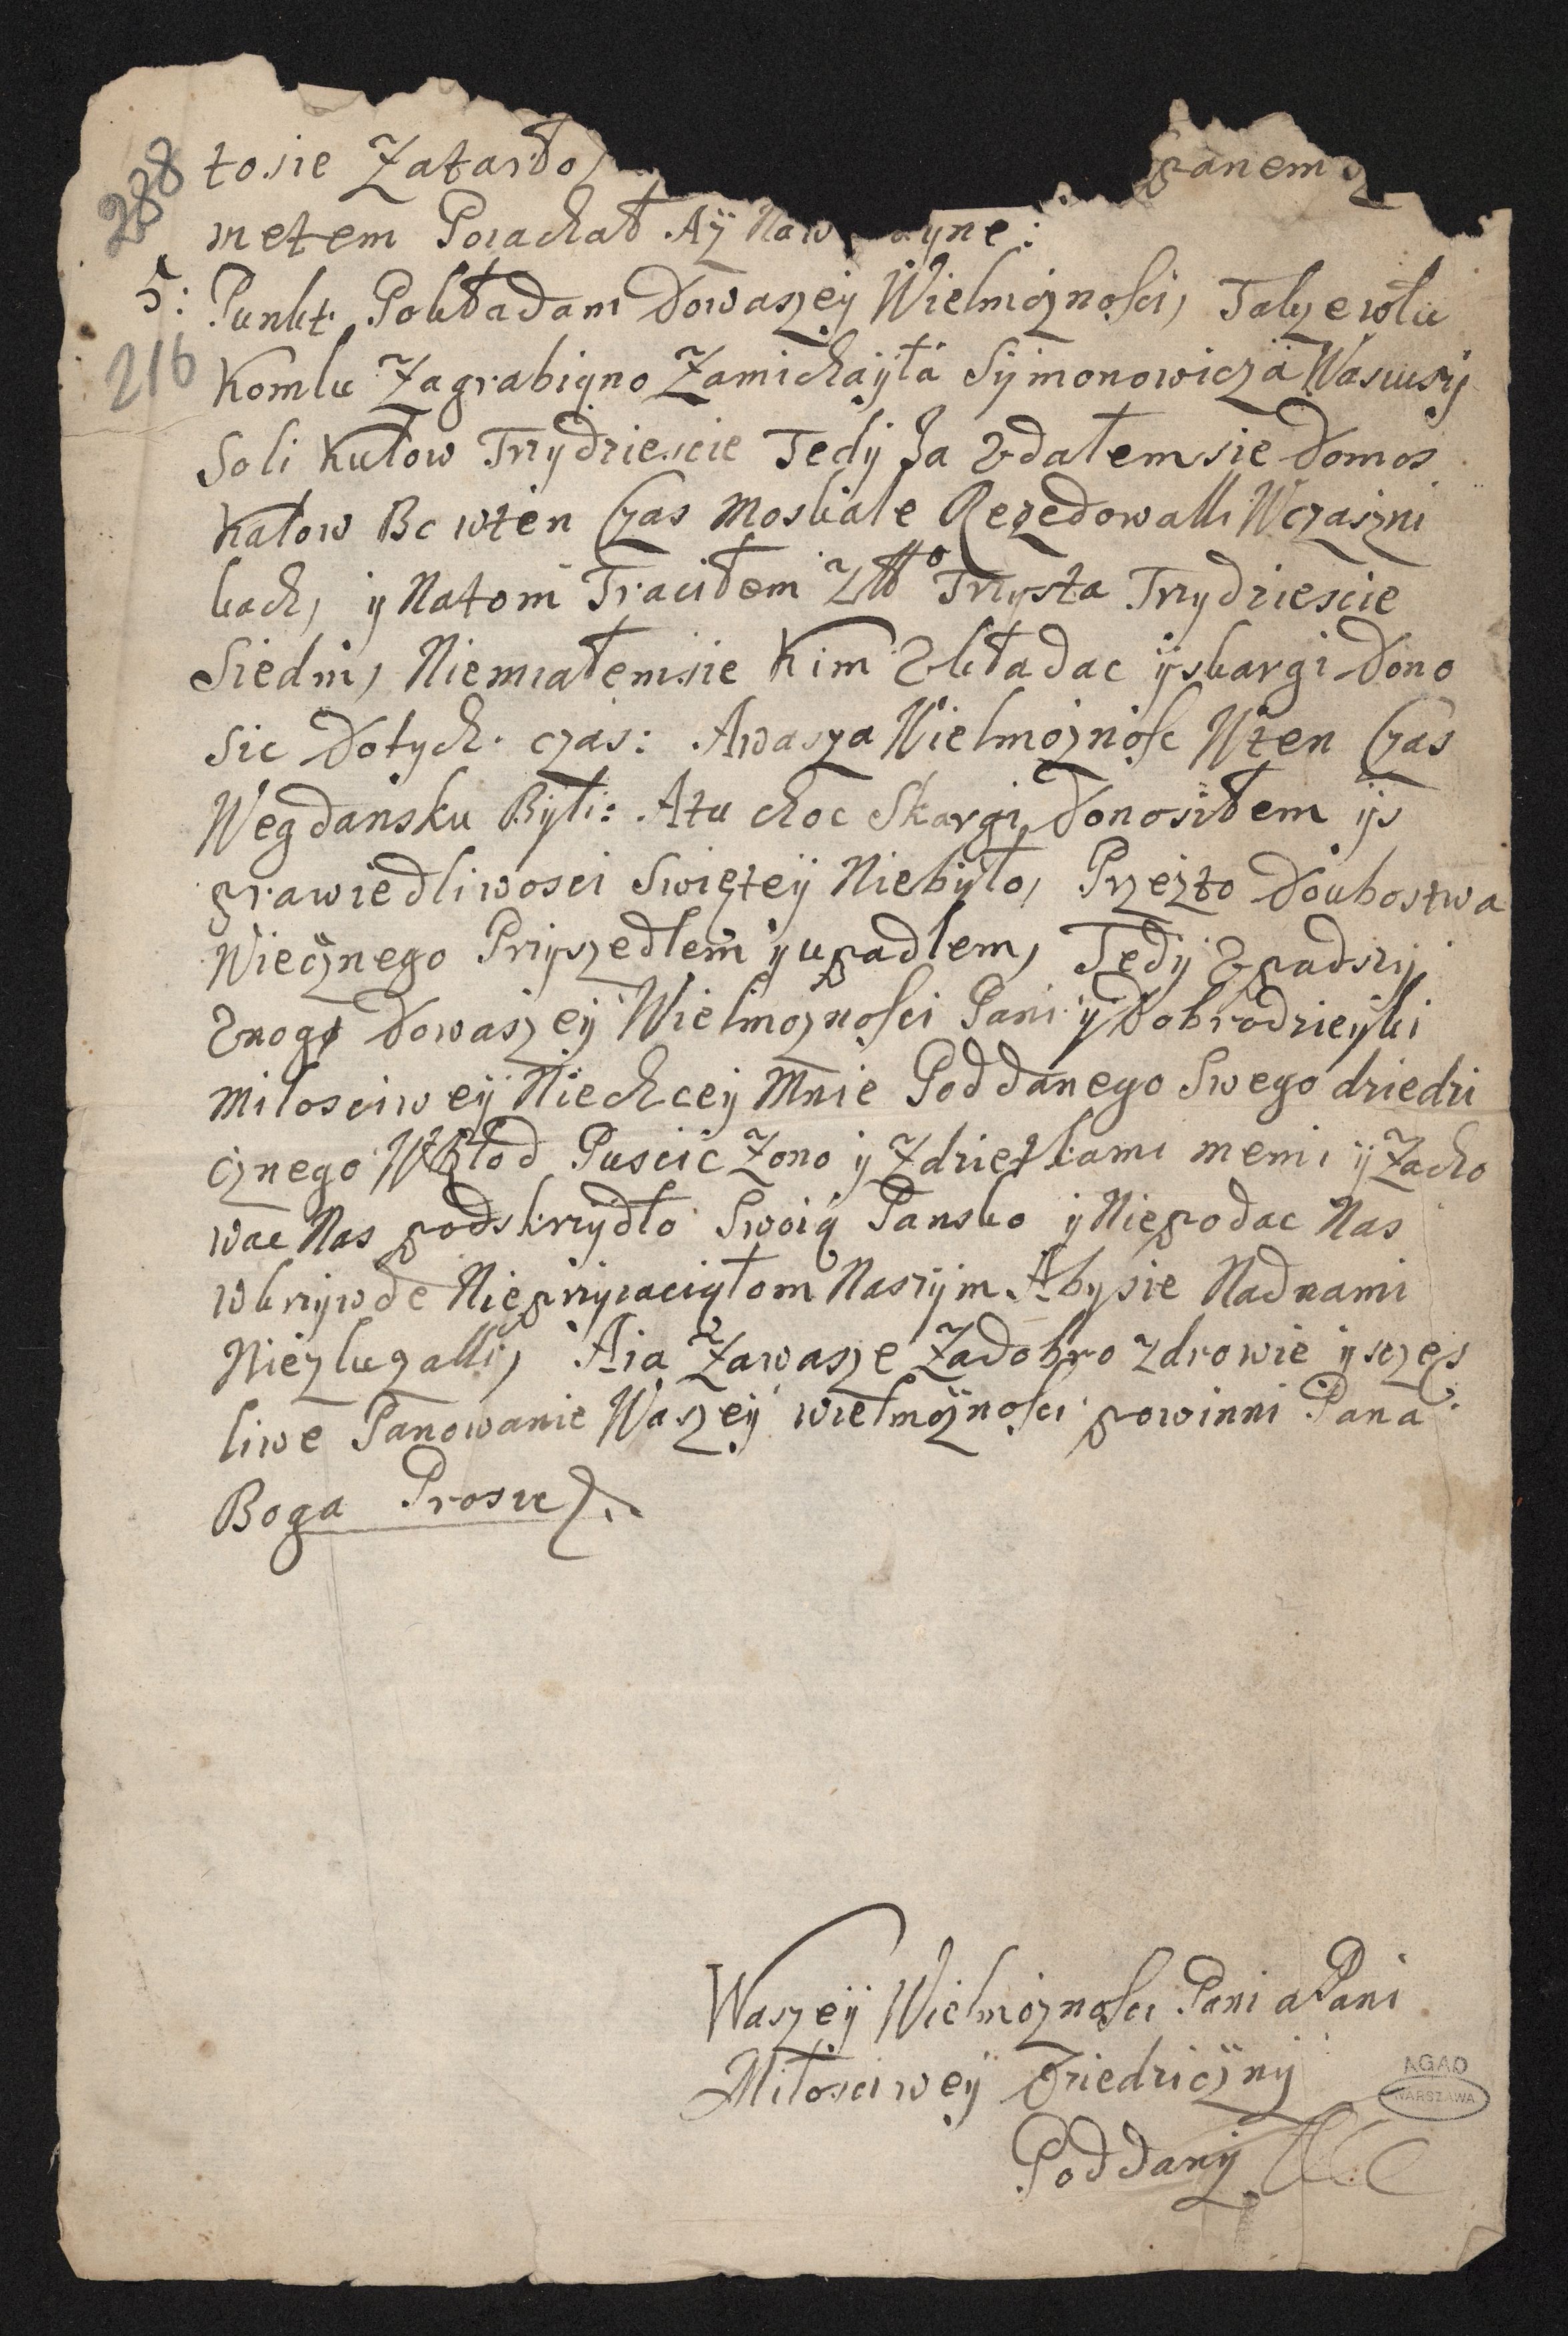 288
tosie Zatarło, panem
metem Poiachał Aÿ
5: Punkt Pokładam Dowaszeÿ Wielmożnosci, Takzewłu
216
Komlu Zagrabiono Zamichaÿła Sÿmonowicza
Soli Kułow Trzydziescie Tedÿ Ja Zdałemsie Domos
kałow Bo wten Czas Moskale Rezedowalli Wczaszni
kach, ÿ Natom Traciłem Złło Trzysta Trzydziescie
Siedm, Niemiałemsie Kim Zkładac ÿskargi Dono
sic Dotych czas: Awasza Wielmożnosc Wten Czas
Wegdansku Byli: Atu choc Skargi Donosiłem ÿs
prawiedliwosci Swięteÿ Niebyło, Przezto Doubostwa
Wiecznego Przyszedłem ÿupadlem, Tedÿ Zpadszÿ
Znog Dowaszeÿ Wielmoznosci Pani ÿ Dobrodzieÿki
milosciweÿ Niechceÿ Mnie Poddanego Swego dziedzi
cznego Wgłod Puscic Zono ÿ Zdzietkami memi ÿ Zacho
wac Nas podskrzydło Swoią Pansko ÿ Niepodac Nas
wkrzywde Nieprzyiaciołom Naszÿm Abysie Nadnami
Niezlugalli, Aia Zawasze Zadobro zdrowie ÿsczęs
liwe Panowanie Waszeÿ wielmożnosci powinni Pana
Boga Prosic
Waszeÿ Wielmożnosci Pani a Pani
Miłosciweÿ Dziedzicznÿ
Poddanÿ
AGAD
WARSZAWA